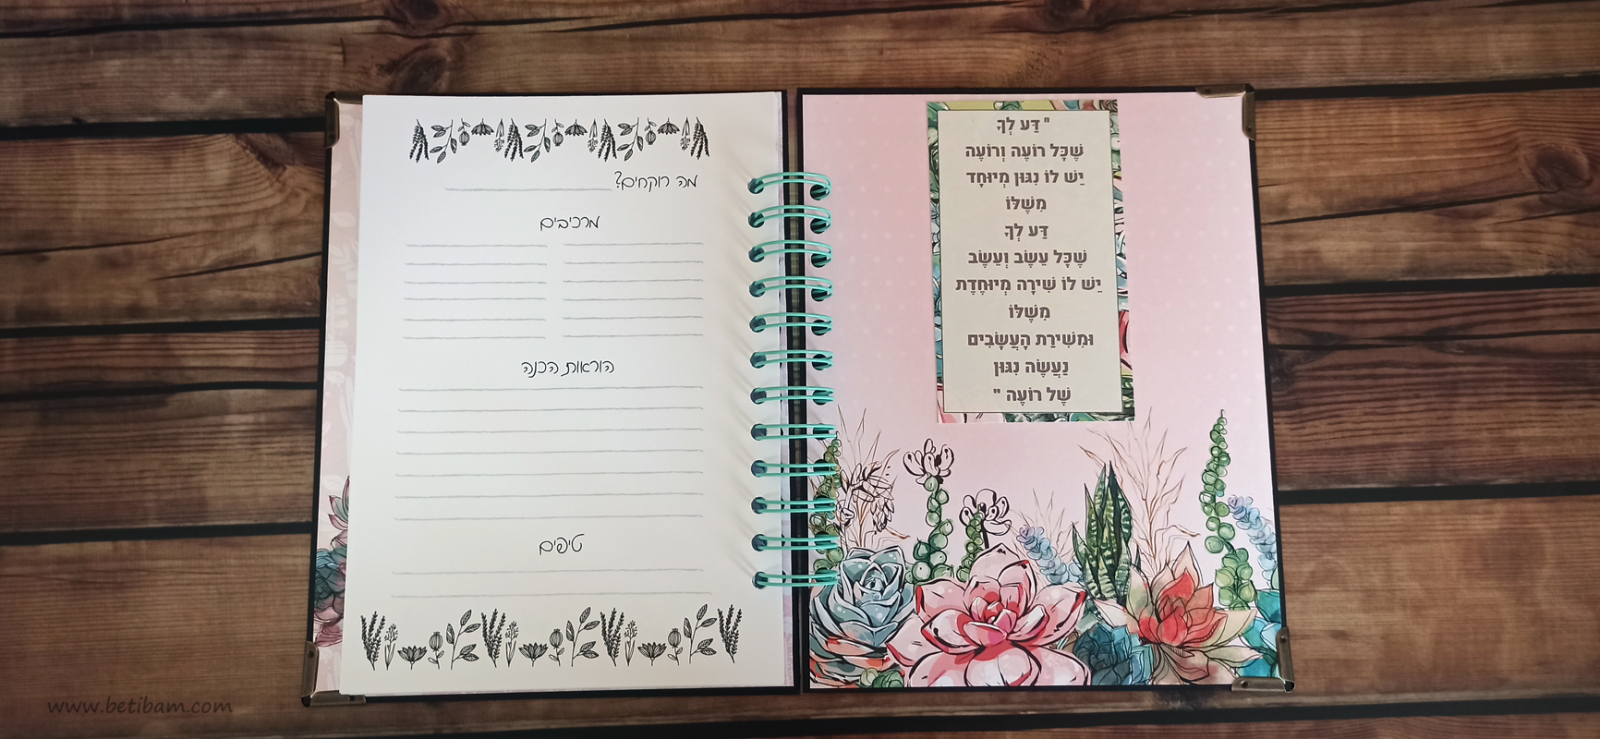 מה רוקחים?
מרכיבים
הוראות הכנה
טיפים
" דַּע לְךָ
שֶׁכָּל רוֹעֶה וְרוֹעֶה
יֵשׁ לוֹ נִגּוּן מְיוּחָד
מִשֶּׁלּוֹ
דַּע לְךָ
שֶׁכָּל עֵשֶׂב וְעֵשֶׂב
יֵשׁ לוֹ שִׁירָה מְיוּחֶדֶת
מִשֶּׁלּוֹ
וּמִשִּׁירַת הָעֲשָׂבִים
נַעֲשֶׂה נִגּוּן
שֶׁל רוֹעֶה "
www.betibam.com